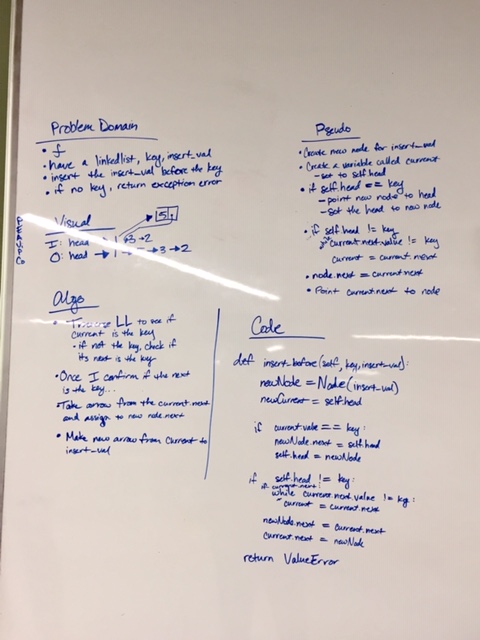 Problem Domain
• f
• have a linkedlist, key, insert_val
• insert the insert_val before the key
• if no key, return exception error
Visual
5
I: head → 1 → 3 → 2
O: head → 1 → 3 → 2
Algo
• LL to see if
current is the key
• if not the key, check if
its next is the key
• Once I confirm if the next
is the key...
• Take arrow from the current.next
and assign to new node.next
• Make new arrow from current to
insert_val
Pseudo
• Create new node for insert_val
• Create a variable called current
- set to self.head
• if self.head == key
- point new node to head
- set the head to new node
• if self.head != key
current.next.value != key
current = current.next
• node.next = current.next
• Point current.next to node
Code
def insert_before(self, key, insert_val):
newNode = Node(insert_val)
newCurrent = self.head
if current.value == key:
newNode.next = self.head
self.head = newNode
if self.head != key:
if current.next:
while current.next.value != key:
current = current.next
newNode.next = current.next
current.next = newNode
return ValueError